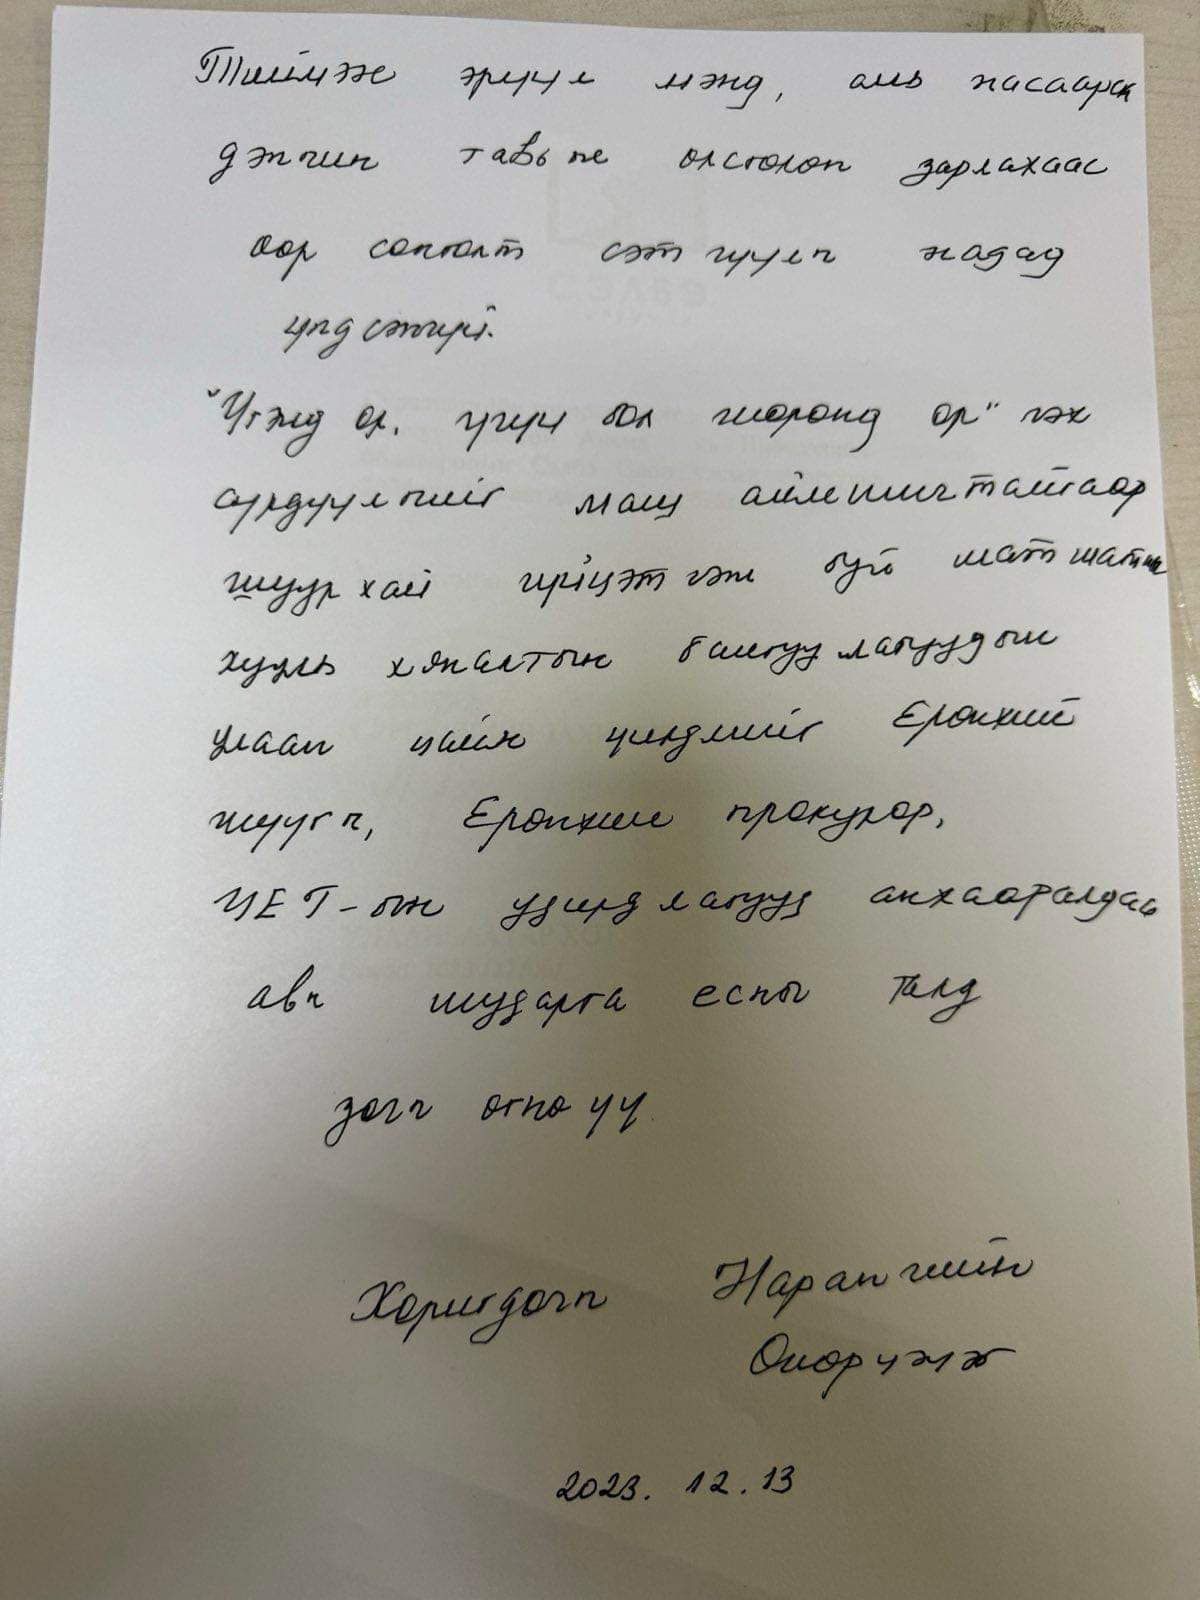 Тиймээс эрүүл мэнд, амь насаараа
дэнчин тавьж өлсгөлөн зарлахаас
өөр сонголт сэтгүүлч надад
үлдсэнгүй.
"Үгэнд ор, үгүй бол шоронд ор" гэх
сүрдүүлгийг маш аймшигтайгаар
шуурхай гүйцэтгэж буй матматын
хууль хяналтын байгууллагуудын
улаан цайм үйлдлийг Ерөнхий
шүүгч, Ерөнхий прокурор,
ЦЕГ-ын удирдлагууд анхааралдаа
авч шударга ёсны талд
зогсч өгнө үү.
Хоригдогч Нарангийн
Өнөрцэцэг
2023. 12. 13